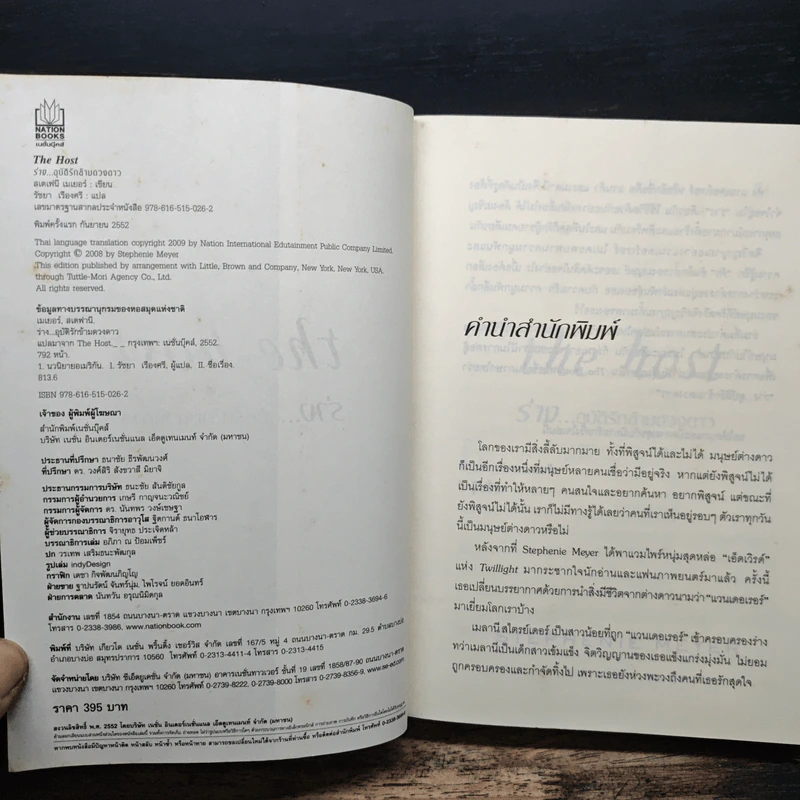 NATION
BOOKS
เนชั่นบุ๊คส์
The Host
ร่าง...อุบัติรักข้ามดวงดาว
สเตเฟนี เมเยอร์ : เขียน
รัชยา เรืองศรี : แปล
เลขมาตรฐานสากลประจำหนังสือ 978-616-515-026-2
พิมพ์ครั้งแรก กันยายน 2552
Thai language translation copyright 2009 by Nation International Edutainment Public Company Limited.
Copyright © 2008 by Stephenie Meyer
This edition published by arrangement with Little, Brown and Company, New York, New York, USA.
through Tuttle-Mori Agency Co., Ltd.
All rights reserved.
ข้อมูลทางบรรณานุกรมของหอสมุดแห่งชาติ
เมเยอร์, สเตฟานี.
ร่าง...อุบัติรักข้ามดวงดาว
แปลมาจาก The Host._ _ กรุงเทพฯ: เนชั่นบุ๊คส์, 2552.
792 หน้า.
1. นวนิยายอเมริกัน. I. รัชยา เรืองศรี, ผู้แปล. II. ชื่อเรื่อง.
813.6
ISBN 978-616-515-026-2
เจ้าของ ผู้พิมพ์ผู้โฆษณา
สำนักพิมพ์เนชั่นบุ๊คส์
บริษัท เนชั่น อินเตอร์เนชั่นแนล เอ็ดดูเทนเมนท์ จำกัด (มหาชน)
ประธานที่ปรึกษา ธนาชัย ธีรพัฒนวงศ์
ที่ปรึกษา ดร. วงศ์สิริ สังขวาสี มิยาจิ
ประธานกรรมการบริษัท ธนะชัย สันติชัยกูล
กรรมการผู้อำนวยการ เกษรี กาญจนะวณิชย์
กรรมการผู้จัดการ ดร. นันทพร วงษ์เชษฐา
ผู้จัดการกองบรรณาธิการอาวุโส ฐิตกานต์ ธนาโอฬาร
ผู้ช่วยบรรณาธิการ จิรายุทธ ประเจิดหล้า
บรรณาธิการเล่ม อภิภา ณ ป้อมเพ็ชร์
ปก วรเทพ เสริมธนะพัฒกุล
รูปเล่ม indyDesign
กราฟิก เดชา กิจพัฒนภิญโญ
ฝ่ายขาย ฐาปนรัตน์ จันทร์นุ่ม, ไพโรจน์ ยอดอินทร์
ฝ่ายการตลาด นันทวัน อรุณนิมิตกุล
สำนักงาน เลขที่ 1854 ถนนบางนา-ตราด แขวงบางนา เขตบางนา กรุงเทพฯ 10260 โทรศัพท์ 0-2338-3694-6
โทรสาร 0-2338-3986, www.nationbook.com
พิมพ์ที่ บริษัท เกียวโด เนชั่น พริ้นติ้ง เซอร์วิส จำกัด เลขที่ 167/5 หมู่ 4 ถนนบางนา-ตราด กม. 29.5 ตำบลบางบ่อ
อำเภอบางบ่อ สมุทรปราการ 10560 โทรศัพท์ 0-2313-4411-4 โทรสาร 0-2313-3415
จัดจำหน่ายโดย บริษัท ซีเอ็ดยูเคชั่น จำกัด (มหาชน) อาคารเนชั่นทาวเวอร์ ชั้นที่ 19 เลขที่ 1858/87-90 ถนนบางนา-ตราด
แขวงบางนา เขตบางนา กรุงเทพฯ 10260 โทรศัพท์ 0-2739-8222, 0-2739-8000 โทรสาร 0-2739-8356-9 www.se-ed.com
ราคา 395 บาท
สงวนลิขสิทธิ์ พ.ศ. 2552 โดยบริษัท เนชั่น อินเตอร์เนชั่นแนล เอ็ดดูเทนเมนท์ จำกัด (มหาชน)
หากพบหนังสือมีปัญหาหน้าติด หน้าสลับ หน้าซ้ำ หรือหน้าหาย สามารถขอเปลี่ยนใหม่ได้จากร้านที่ท่านซื้อ หรือติดต่อสำนักพิมพ์ โทรศัพท์
คำนำสำนักพิมพ์
โลกของเรามีสิ่งลี้ลับมากมาย ทั้งที่พิสูจน์ได้และไม่ได้ มนุษย์ต่างดาว
ก็เป็นอีกเรื่องหนึ่งที่มนุษย์หลายคนเชื่อว่ามีอยู่จริง หากแต่ยังพิสูจน์ไม่ได้
เป็นเรื่องที่ทำให้หลายๆ คนสนใจและอยากค้นหา อยากพิสูจน์ แต่ขณะที่
ยังพิสูจน์ไม่ได้นั้น เราก็ไม่มีทางรู้ได้เลยว่าคนที่เราเห็นอยู่รอบๆ ตัวเราทุกวัน
นี้เป็นมนุษย์ต่างดาวหรือไม่
หลังจากที่ Stephenie Meyer ได้พาแวมไพร์หนุ่มสุดหล่อ “เอ็ดเวิร์ด”
แห่ง Twillight มากระชากใจนักอ่านและแฟนภาพยนตร์มาแล้ว ครั้งนี้
เธอเปลี่ยนบรรยากาศด้วยการนำสิ่งมีชีวิตจากต่างดาวนามว่า “แวนเดอเรอร์”
มาเยี่ยมโลกเราบ้าง
เมลานี สไตรย์เดอร์ เป็นสาวน้อยที่ถูก “แวนเดอเรอร์” เข้าครอบครองร่าง
ทว่าเมลานีเป็นเด็กสาวเข้มแข็ง จิตวิญญาณของเธอแข็งแกร่งมุ่งมั่น ไม่ยอม
ถูกครอบครองและกำจัดทิ้งไป เพราะเธอยังห่วงพะวงถึงคนที่เธอรักสุดใจ